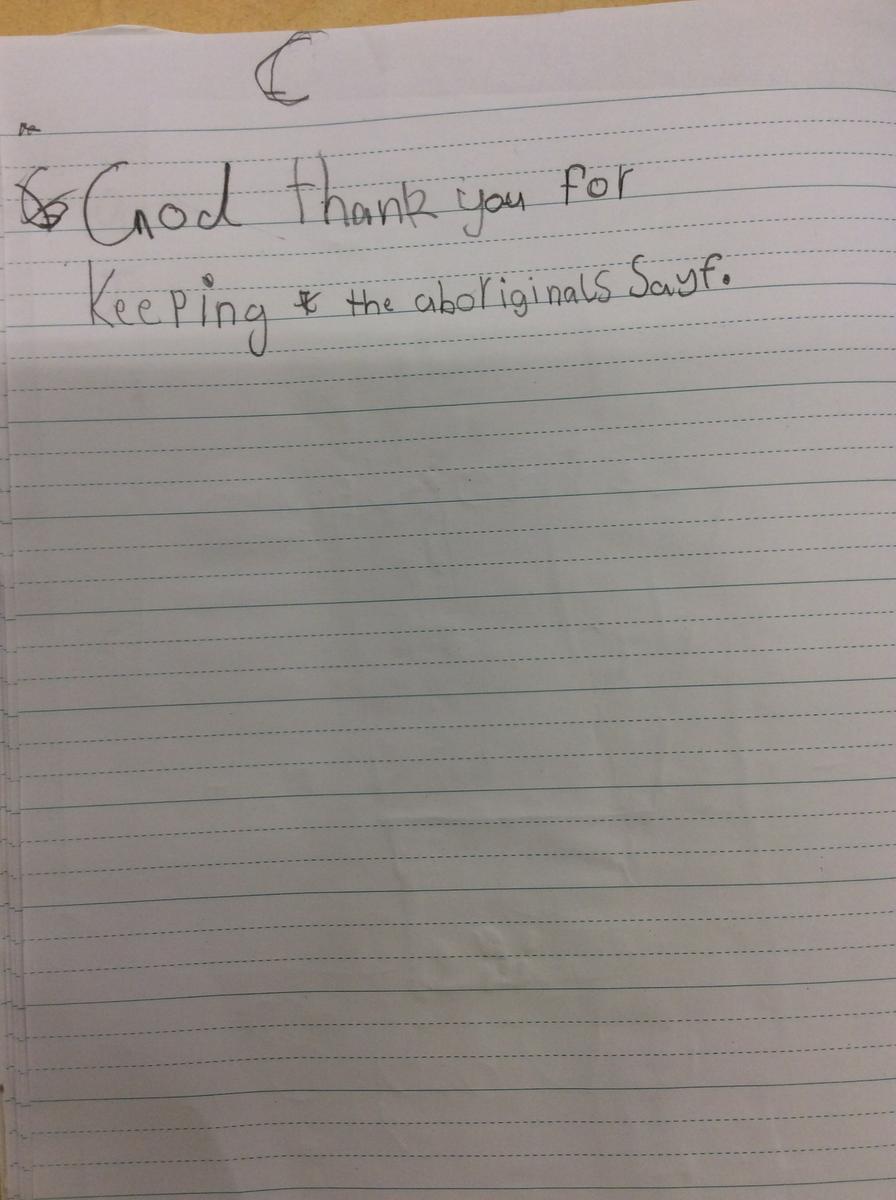 C
God thank you for
Keeping the aboriginals Sayf.